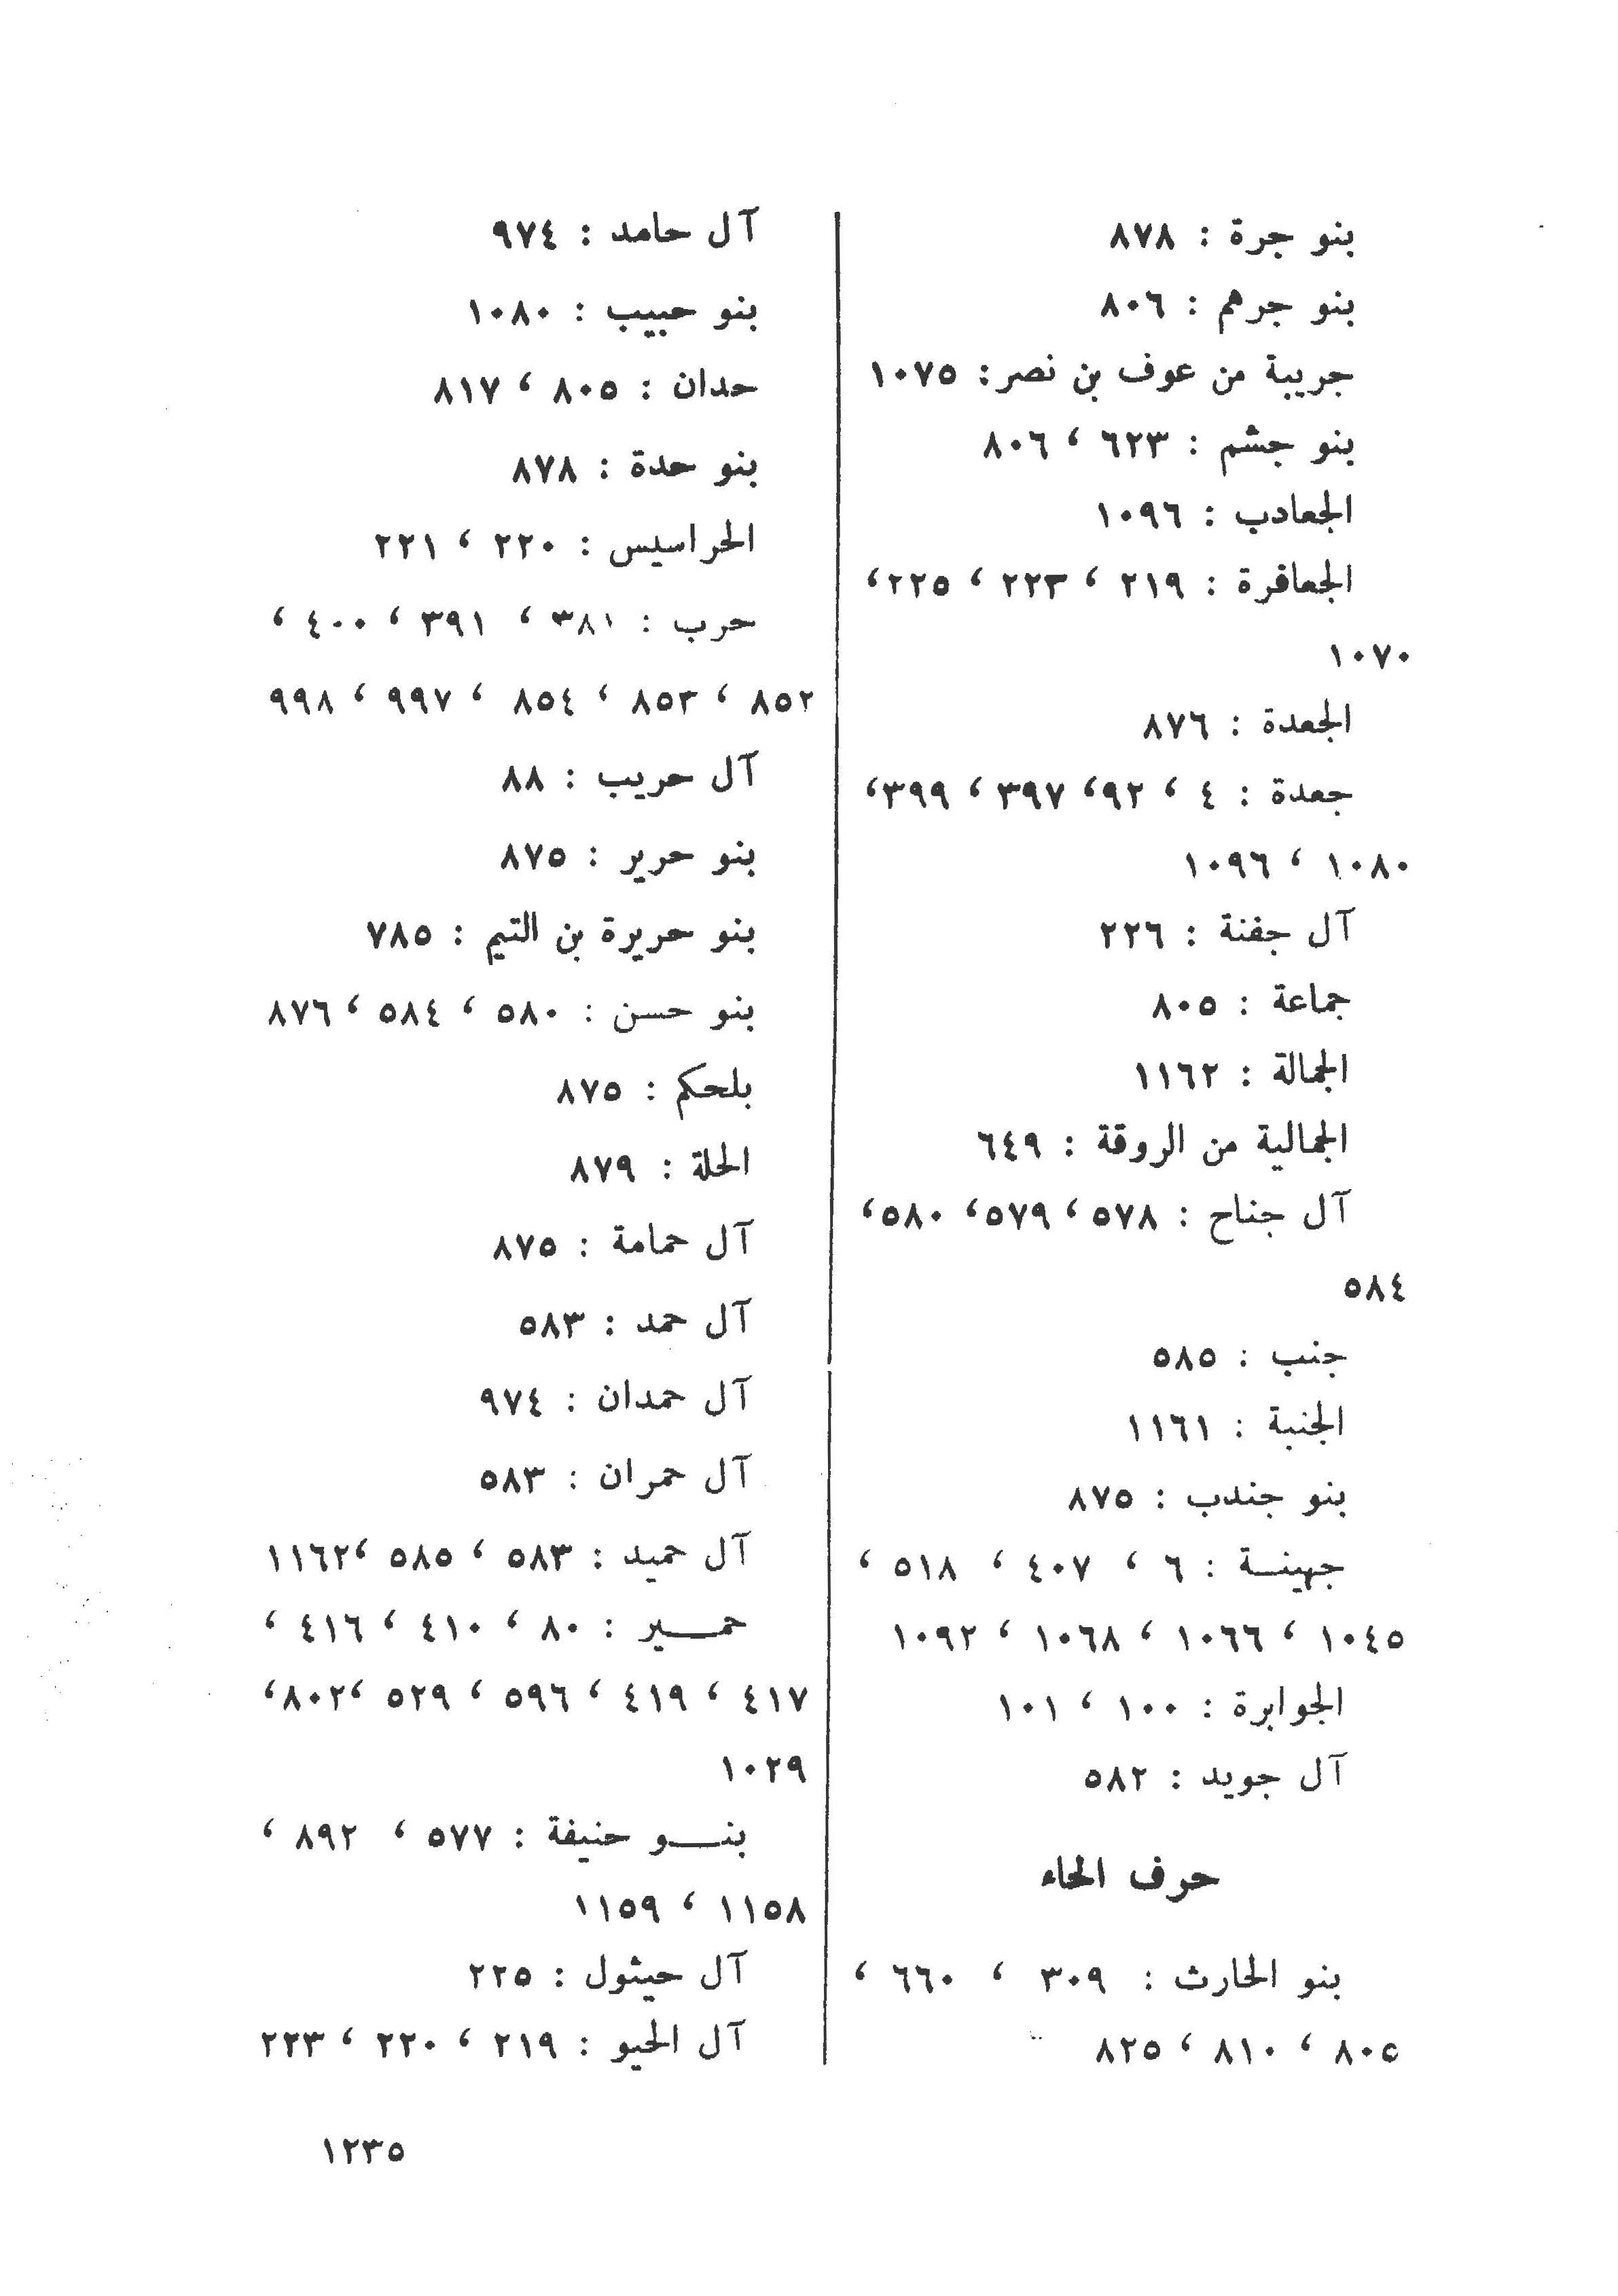 بنو جرة : ٨٧٨
بنو جرهم : ٨٠٦
جريبة من عوف بن نصر: ١٠٧٥
بنو جشم : ٦٢٣ ، ٨٠٦
الجعادب : ١٠٩٦
الجعافرة : ٢١٩ ، ٢٢٣ ، ٢٢٥،
١٠٧٠
الجعدة : ٨٧٦
جعدة : ٤ ، ٩٢، ٣٩٧ ، ٣٩٩،
١٠٨٠ ، ١٠٩٦
آل جفنة : ٢٢٦
جماعة : ٨٠٥
الجمالة : ١١٦٢
الجمالية من الروقة : ٦٤٩
آل جناح : ٥٧٨ ، ٥٧٩، ٥٨٠،
٥٨٤
جنب : ٥٨٥
الجنبة : ١١٦١
بنو جندب : ٨٧٥
جهينـة : ٦ ، ٤٠٧ ، ٥١٨ ،
١٠٤٥ ، ١٠٦٦ ، ١٠٦٨ ، ١٠٩٢
الجوابرة : ١٠٠ ، ١٠١
آل جويد : ٥٨٢
حرف الحاء
بنو الحارث : ٣٠٩ ، ٦٦٠ ،
٨٠٥ ، ٨١٠ ، ٨٢٥
آل حامد : ٩٧٤
بنو حبيب : ١٠٨٠
حدان : ٨٠٥ ، ٨١٧
بنو حدة : ٨٧٨
الحراسيس : ٢٢٠ ، ٢٢١
حرب : ٣٨١ ، ٣٩١ ، ٤٠٠ ،
٨٥٢ ، ٨٥٣ ، ٨٥٤ ، ٩٩٧ ، ٩٩٨
آل حريب : ٨٨
بنو حرير : ٨٧٥
بنو حريرة بن التيم : ٧٨٥
بنو حسن : ٥٨٠ ، ٥٨٤ ، ٨٧٦
بلحكم : ٨٧٥
الحلة : ٨٧٩
آل حمامة : ٨٧٥
آل حمد : ٥٨٣
آل حمدان : ٩٧٤
آل حمران : ٥٨٣
آل حميد : ٥٨٣ ، ٥٨٥ ،١١٦٢
حمــير : ٨٠ ، ٤١٠ ، ٤١٦ ،
٤١٧ ، ٤١٩ ، ٥٩٦ ، ٥٢٩ ،٨٠٢،
١٠٢٩
بنــو حنيفة : ٥٧٧ ، ٨٩٢ ،
١١٥٨ ، ١١٥٩
آل حيثول : ٢٢٥
آل الحيو : ٢١٩ ، ٢٢٠ ، ٢٢٣
١٢٣٥